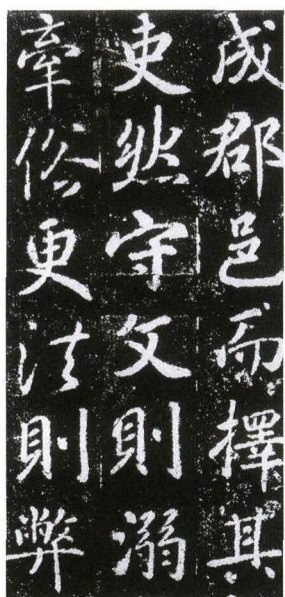 成郡邑而擇其
吏然守文則溺
牽俗更法則弊